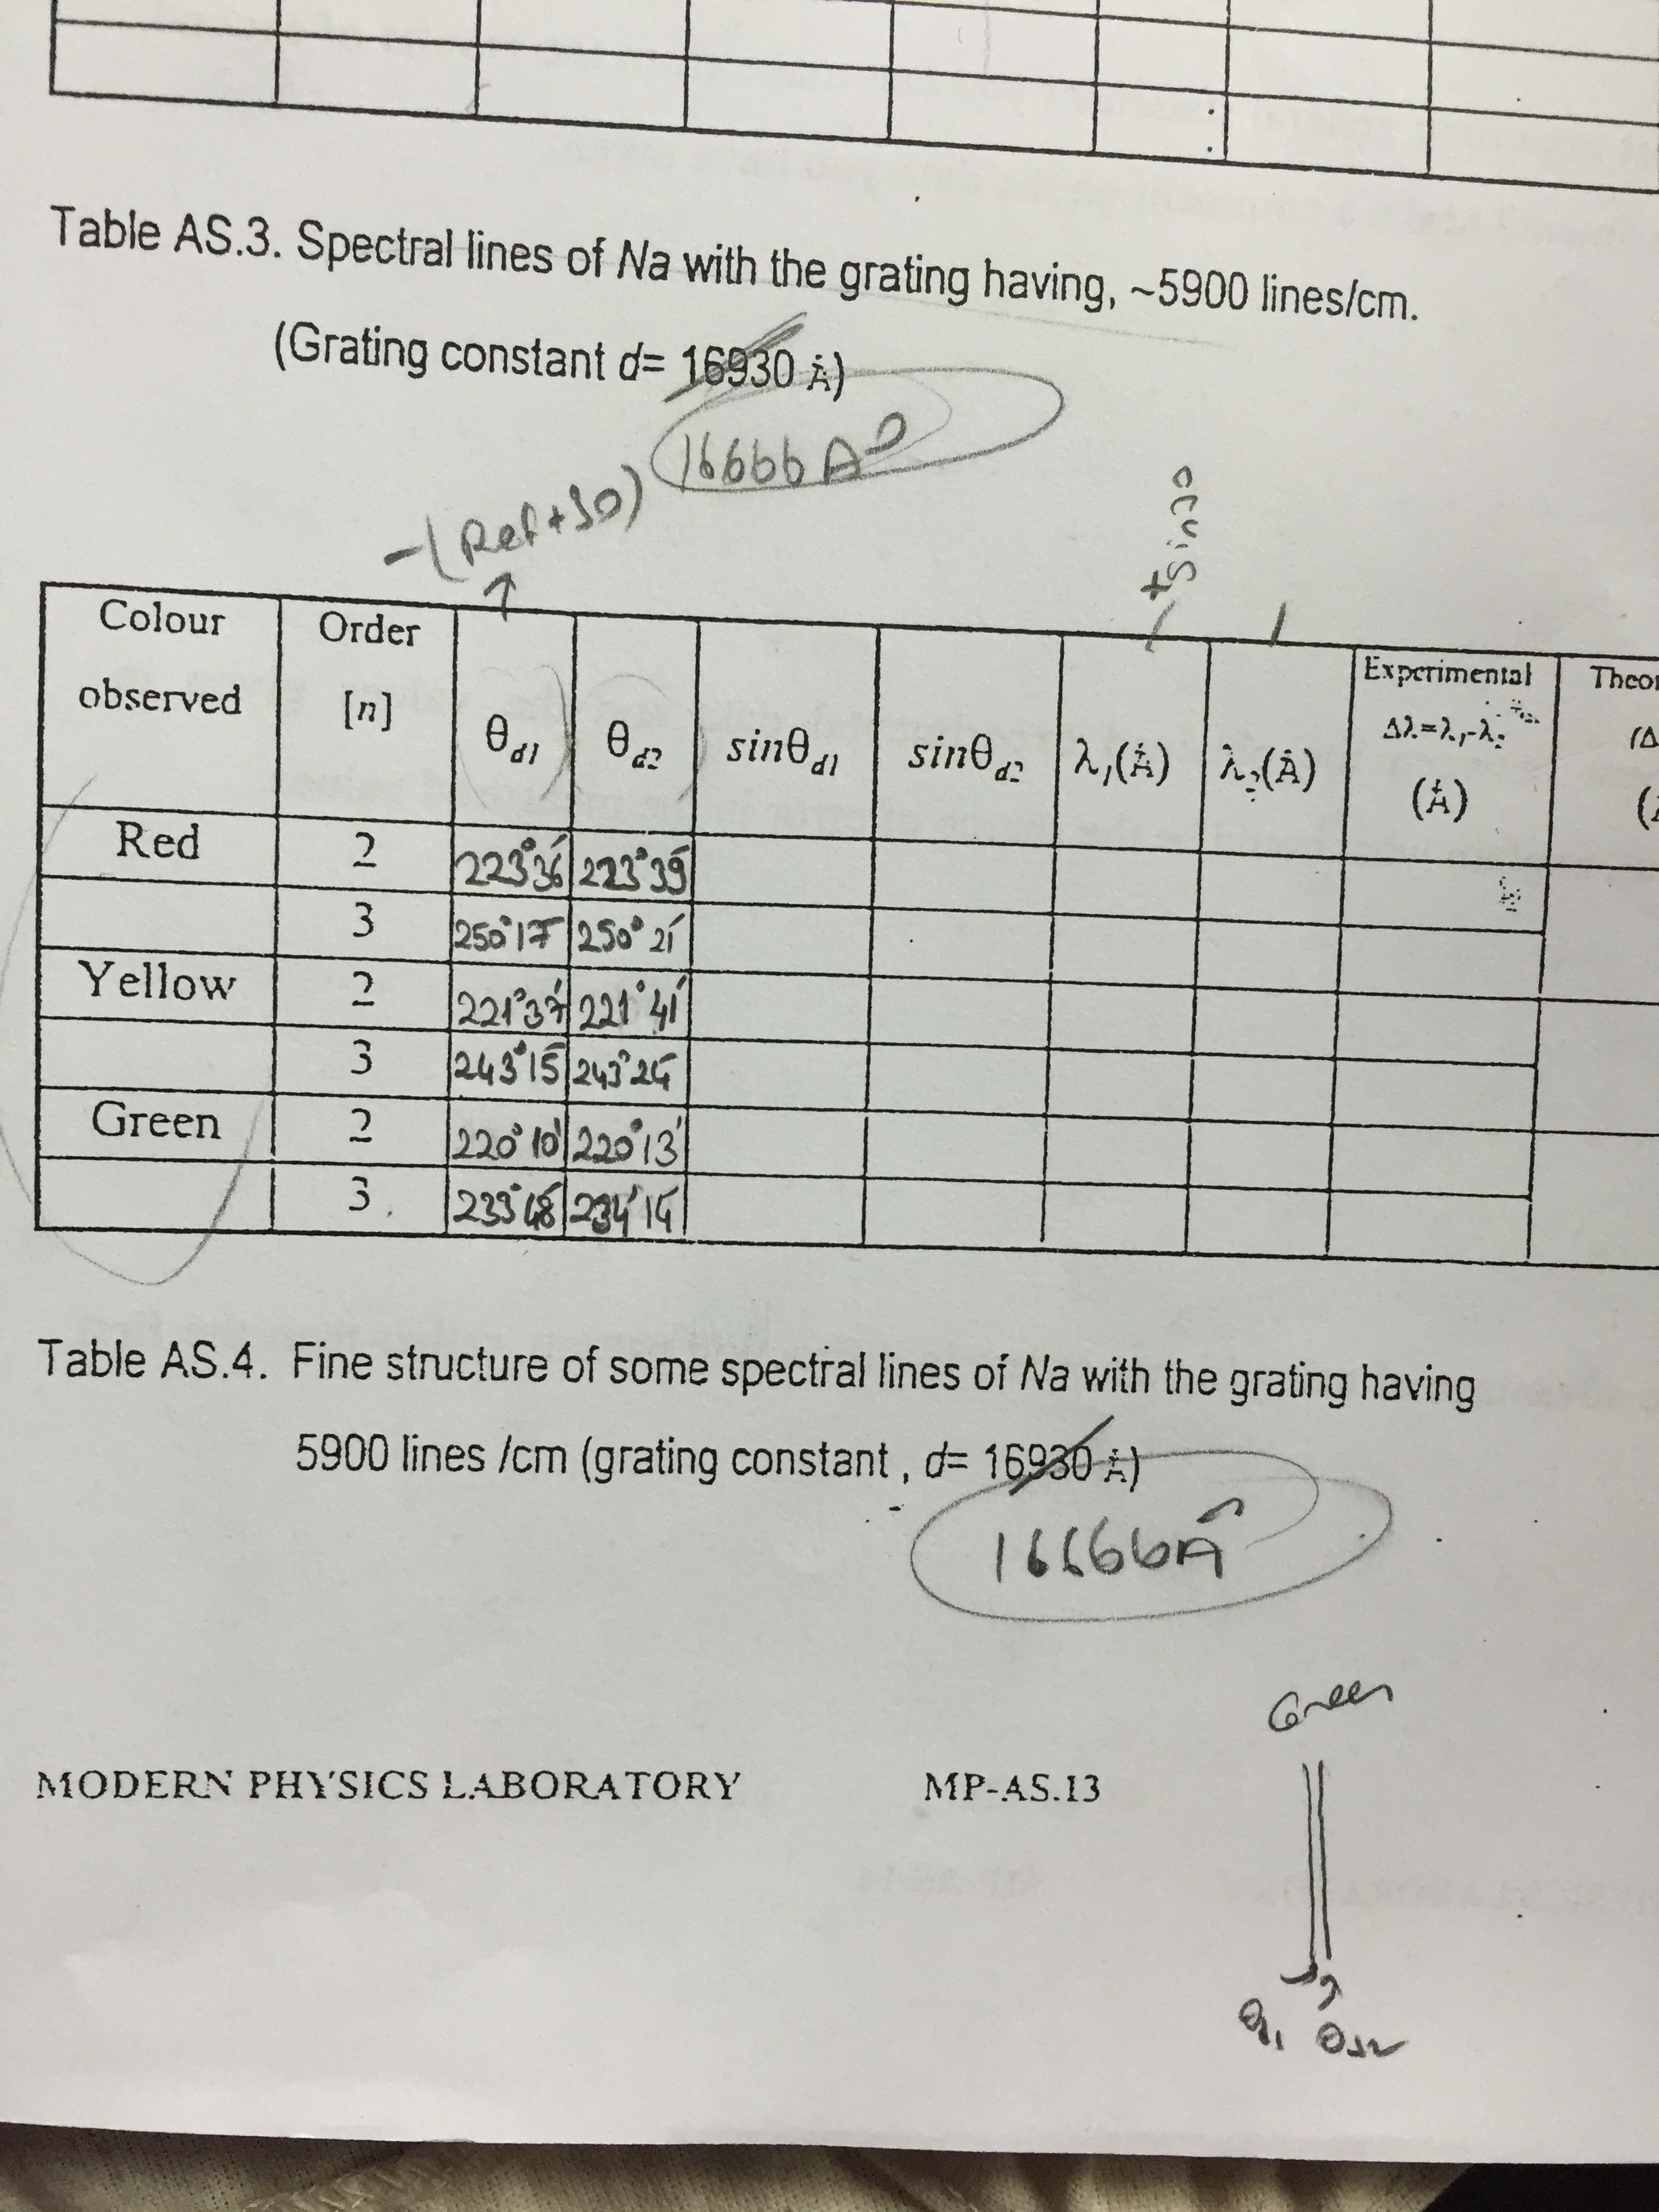 Table AS.3. Spectral lines of Na with the grating having, ~5900 lines/cm.
(Grating constant d= 16930 Å)
16666 A°
-(Ref+30)
+ sin30
Colour observed Order [n] θd1 θd2 sinθd1 sinθd2 λ1(Å) λ2(Å) Experimental Δλ=λ1-λ2 (Å)
Red 2 223°36' 223°39'
3 250°17' 250°21'
Yellow 2 221°37' 221°41'
3 243°15' 243°24'
Green 2 220°10' 220°13'
3 233°48' 234°14'
Table AS.4. Fine structure of some spectral lines of Na with the grating having
5900 lines /cm (grating constant , d= 16930 Å)
16666 A°
Green
MODERN PHYSICS LABORATORY MP-AS.13